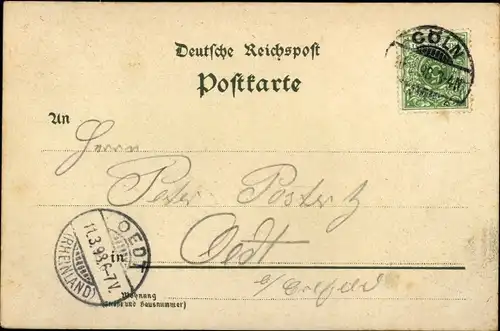 Deutsche Reichspost
Postkarte
CÖLN
An
Herrn
Peter
in Oedt
b/Crefeld
OEDT
11.3.98.6-7V.
(RHEINLAND)
Wohnung
(Straße und Hausnummer)